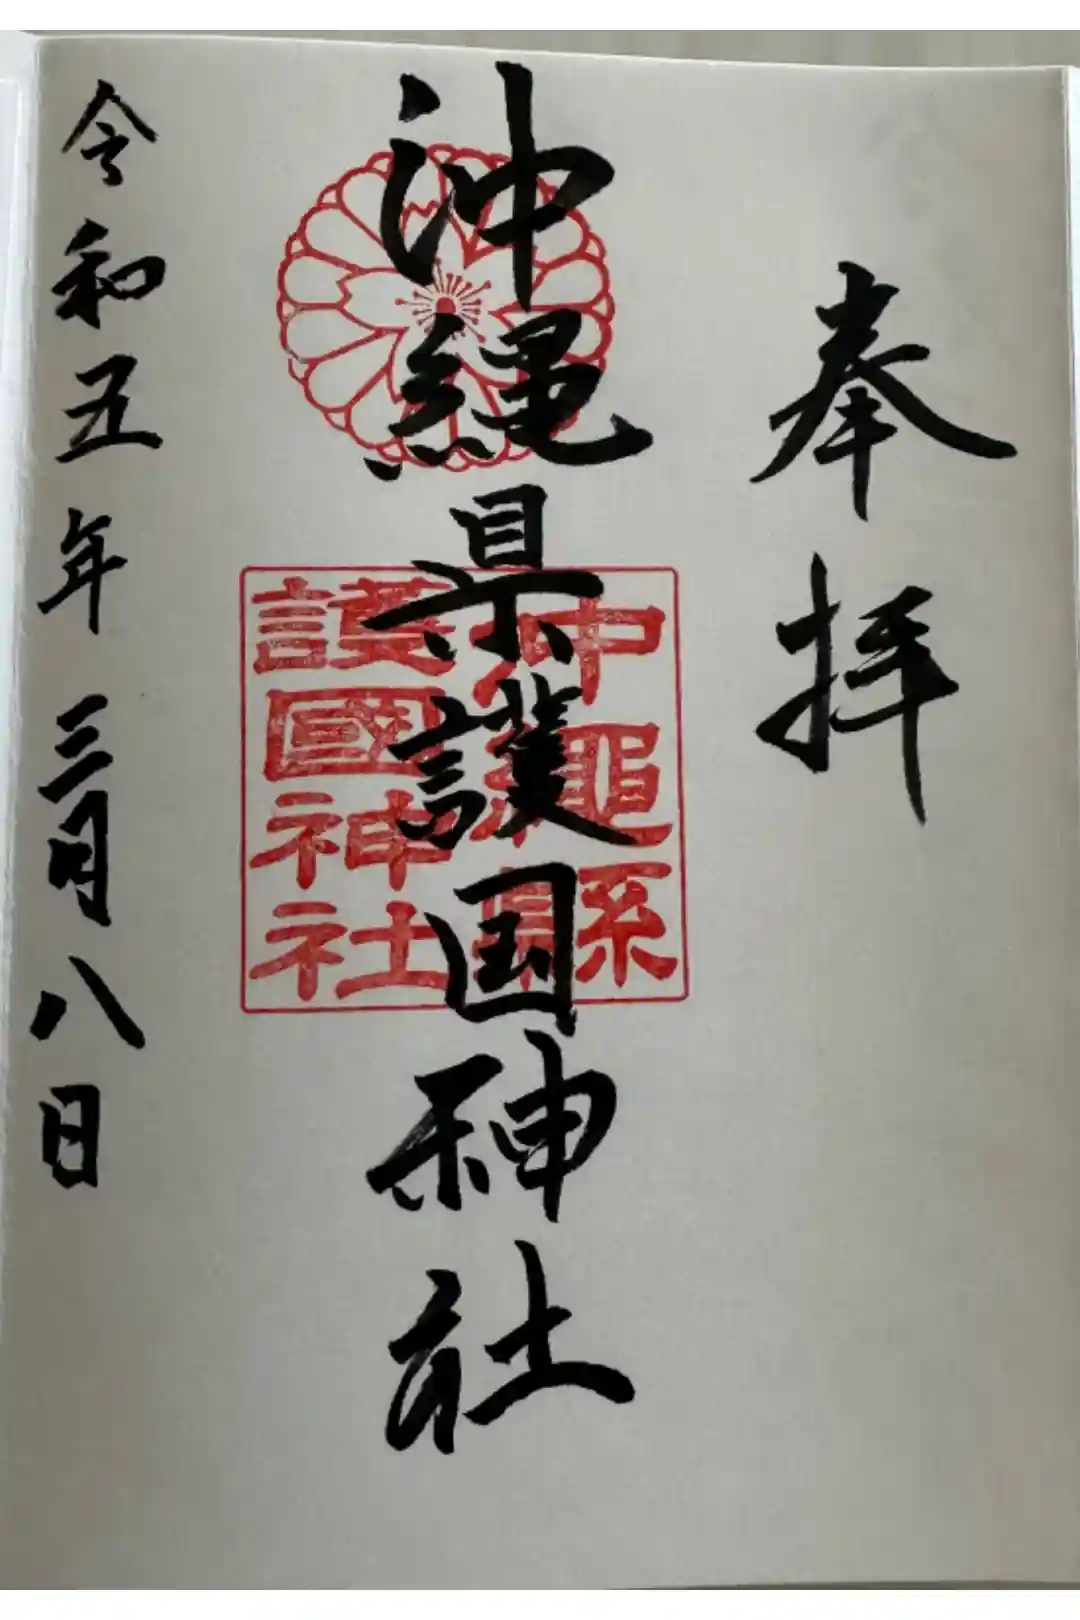 奉拝
沖縄県護国神社
沖繩縣
護國神社
令和五年三月八日